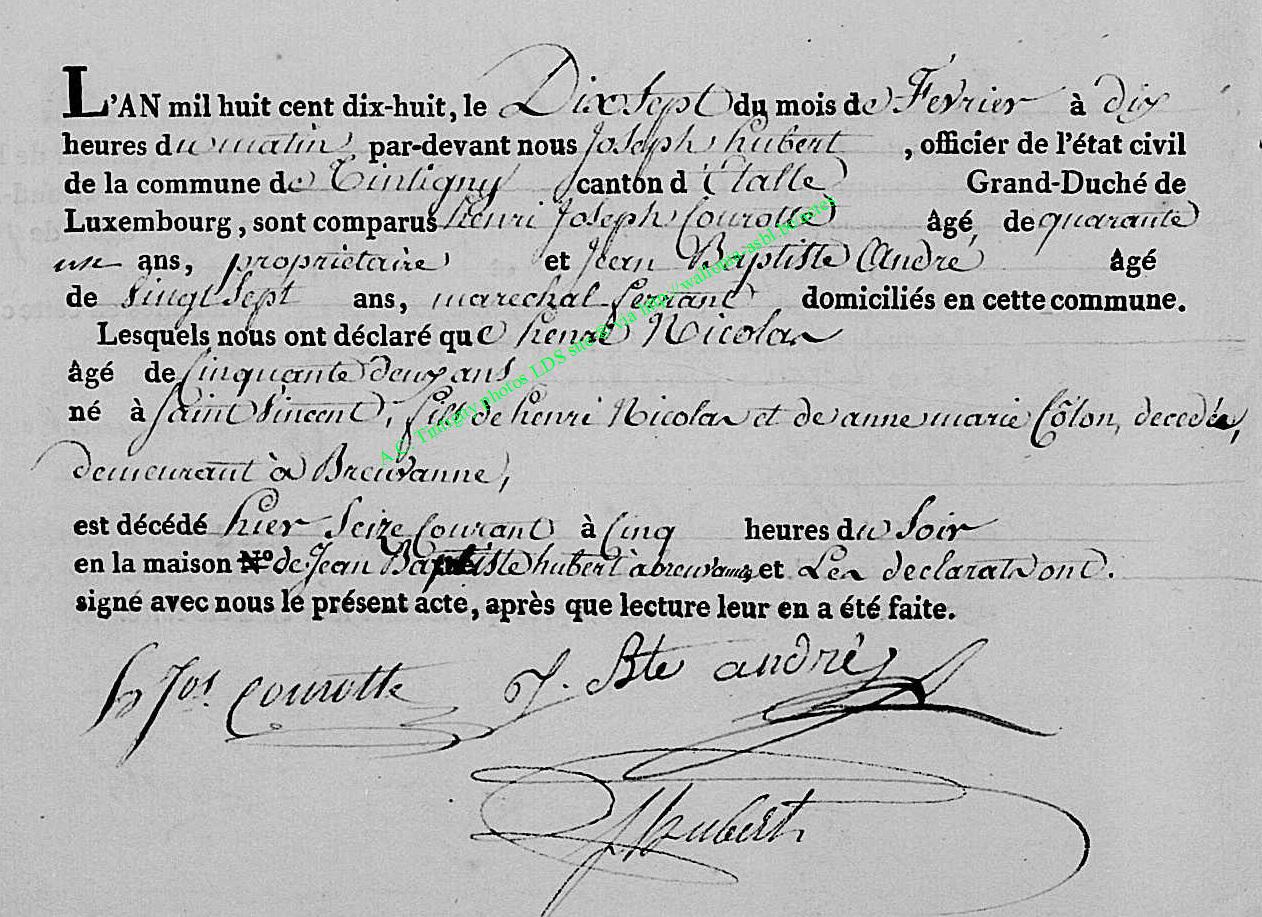 L'AN mil huit cent dix-huit, le Dix Sept du mois de Février à dix
heures du matin par-devant nous Joseph hubert, officier de l'état civil
de la commune de Tintigny canton d'Etalle Grand-Duché de
Luxembourg, sont comparus henri Joseph Courotte âgé de quarante
un ans, propriétaire et Jean Baptiste André âgé
de Vingt Sept ans, marechal ferrant domiciliés en cette commune.
Lesquels nous ont déclaré que henri Nicolas
âgé de Cinquante deux ans
né à Saint Vincent, fils de henri Nicolas et de anne marie Côlon, decedés,
demeurant à Breuvanne,
est décédé hier Seize Courant à Cinq heures du Soir
en la maison N.o de Jean Baptiste hubert à breuvanne, et Les declarats ont.
signé avec nous le présent acte, après que lecture leur en a été faite.
h Jos. Courotte J. Bte andré
JHubert
A.C. Tintigny photos LDS site © via http://wallonia-asbl.be/actes